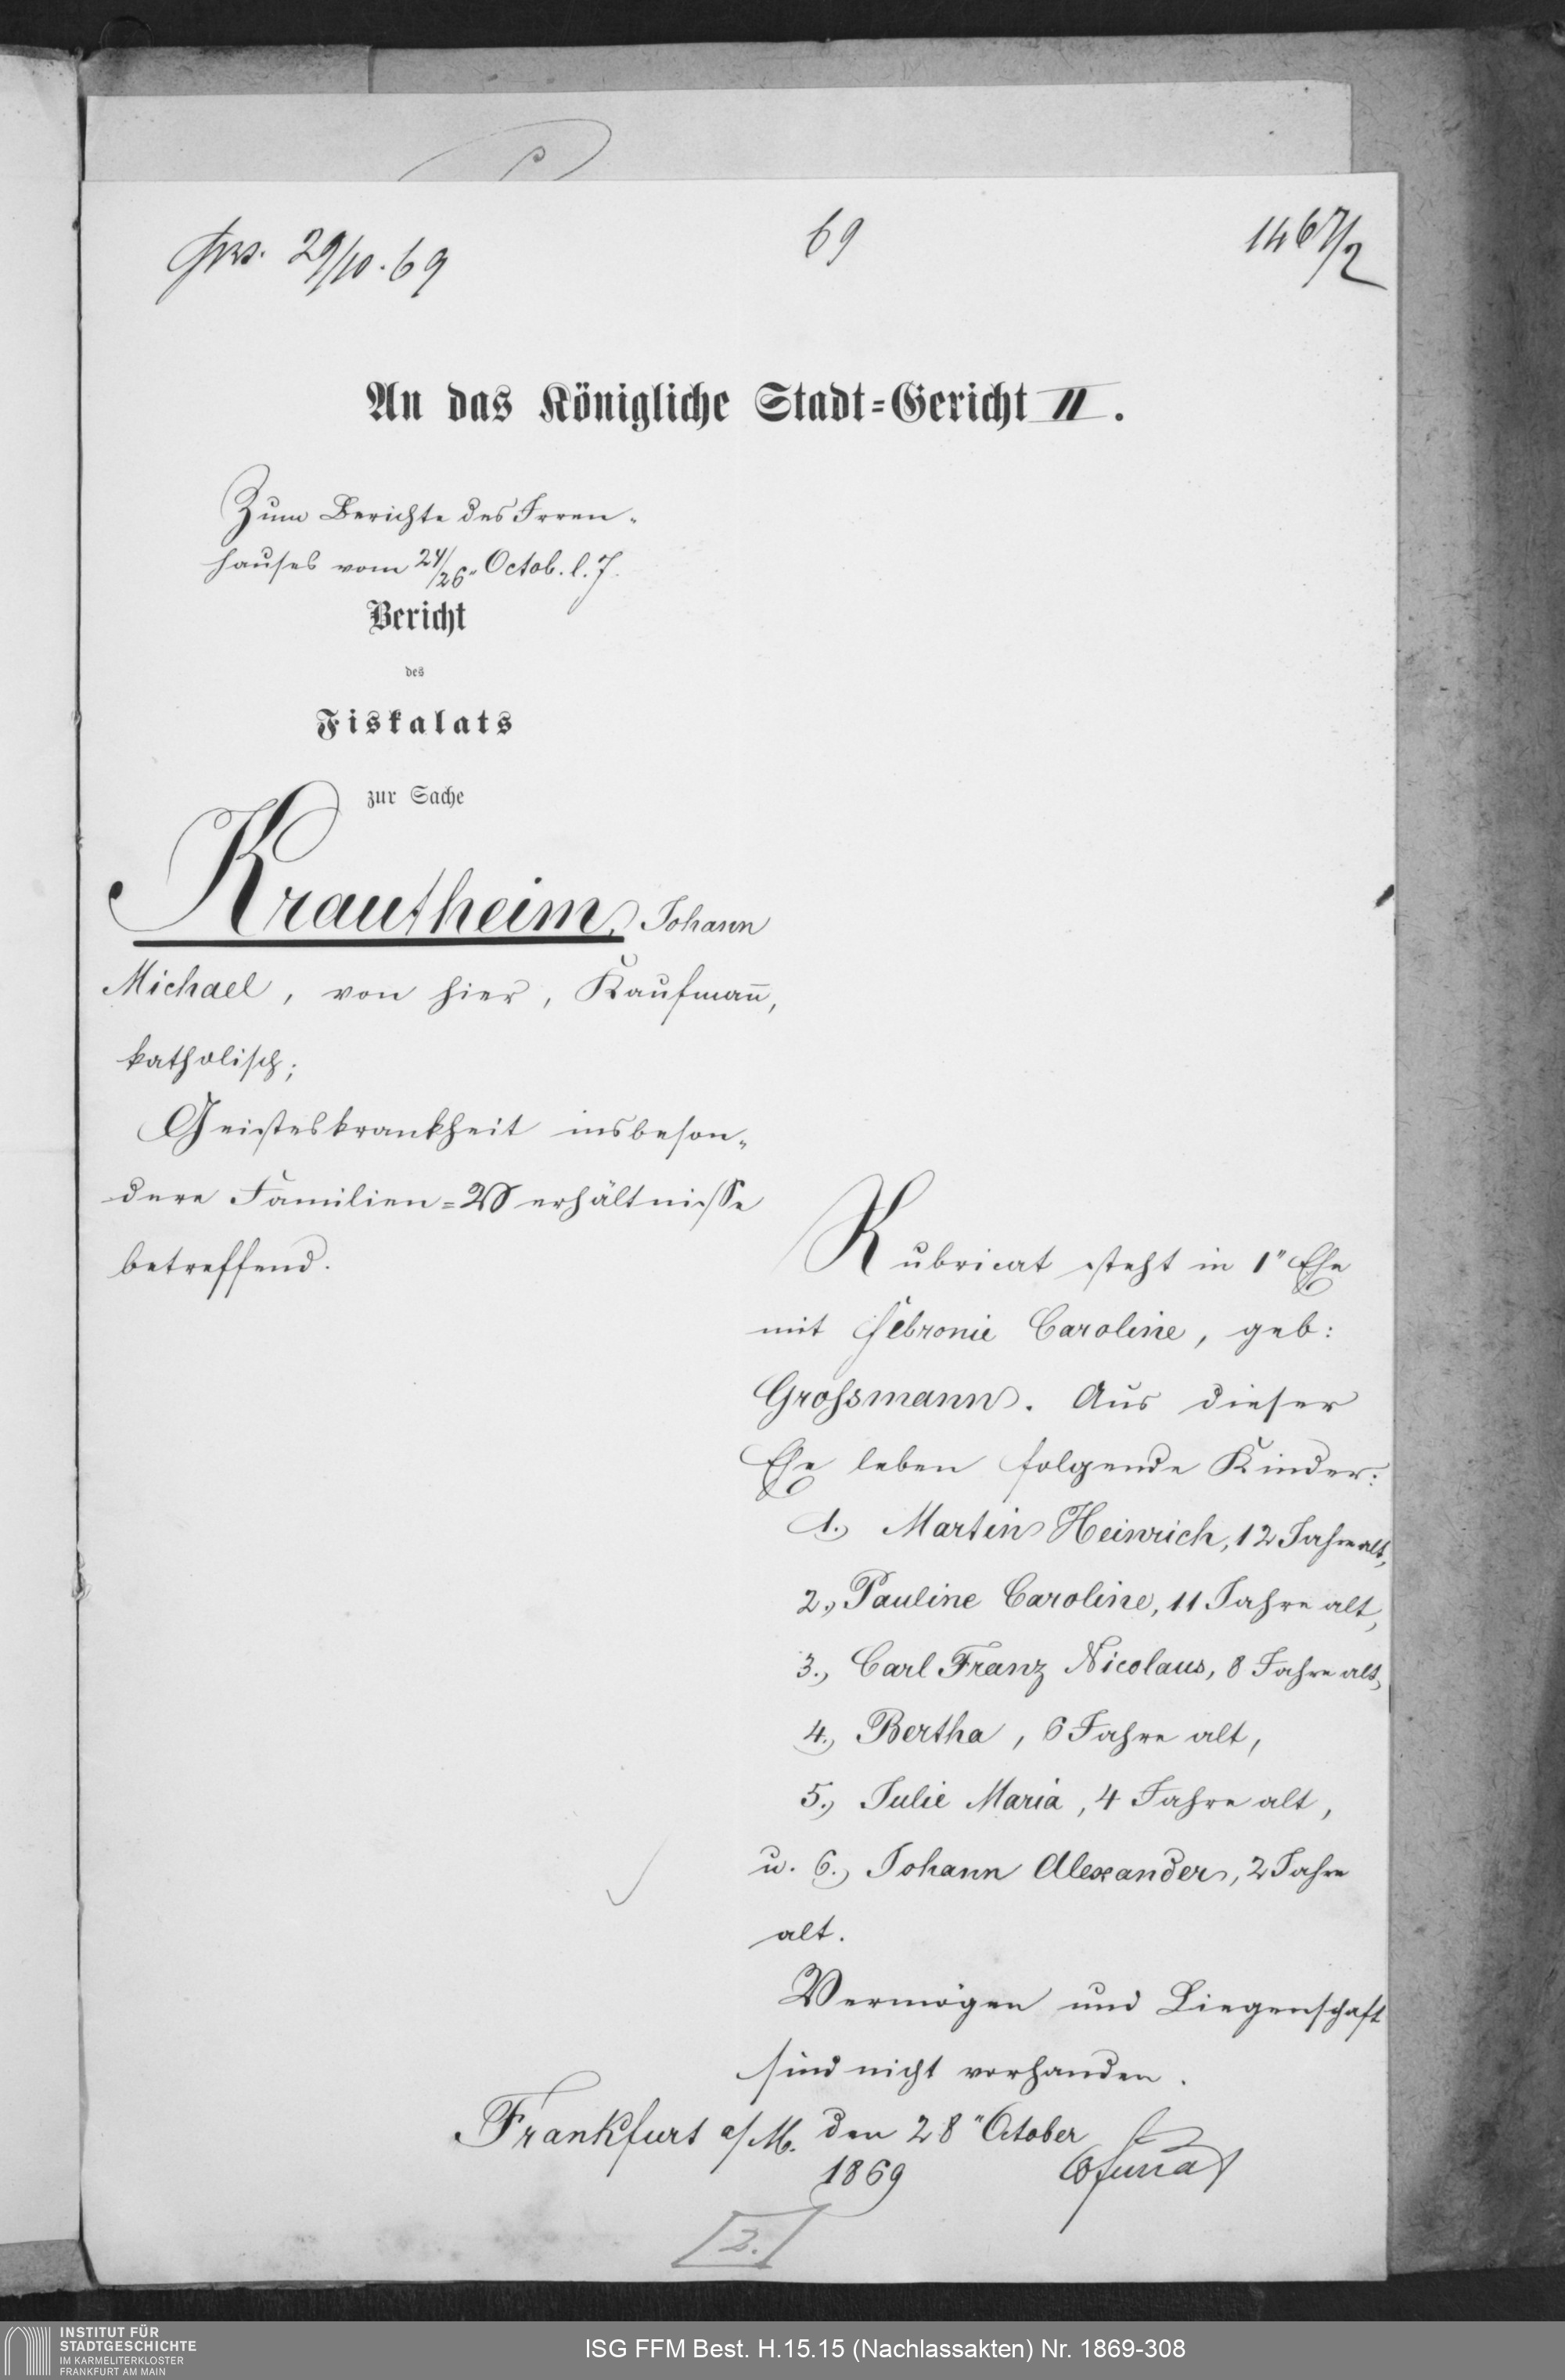 prs. 29/10. 69
69
1467/2
An das Königliche Stadt=Gericht II.
Zum Berichte des Irren-
hauses vom 24/26" Octob. l. J.
Bericht
des
Fiskalats
zur Sache
Krautheim, Johann
Michael, von hier, Kaufmañ,
katholisch;
Geisteskrankheit insbeson-
dere Familien=Verhältnisse
betreffend.
Rubricat steht in 1" Ehe
mit Febronie Caroline, geb:
Grossmann. Aus dieser
Ehe leben folgende Kinder:
1., Martin Heinrich, 12 Jahre alt,
2., Pauline Caroline, 11 Jahre alt,
3., Carl Franz Nicolaus, 8 Jahre alt,
4., Bertha, 6 Jahre alt,
5., Julie Maria, 4 Jahre alt,
u. 6., Johann Alexander, 2 Jahre
alt.
Vermögen und Liegenschaft
sind nicht vorhanden.
Frankfurt a/M. den 28" October
1869
2.
INSTITUT FÜR
STADTGESCHICHTE
IM KARMELITERKLOSTER
FRANKFURT AM MAIN
ISG FFM Best. H.15.15 (Nachlassakten) Nr. 1869-308